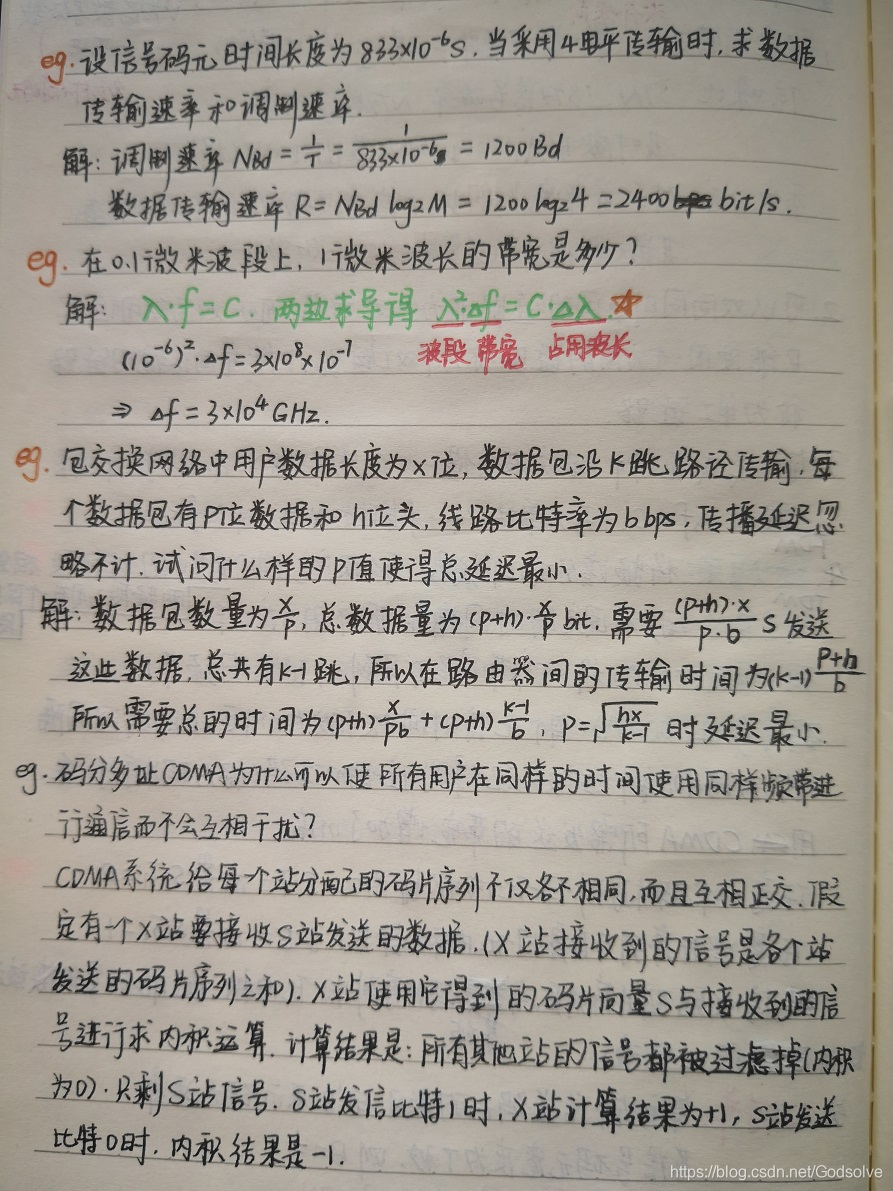 eg. 设信号码元时间长度为833×10⁻⁶S. 当采用4电平传输时, 求数据
传输速率和调制速率.
解: 调制速率 NBd = 1/T = 1/(833×10⁻⁶) = 1200Bd
数据传输速率 R = NBd log₂M = 1200 log₂4 = 2400 bit/s.
eg. 在0.1微米波段上, 1微米波长的带宽是多少?
解: λ·f = C. 两边求导得 λ²·Δf = C·Δλ. ☆
波段 带宽 占用波长
(10⁻⁶)²·Δf = 3×10⁸×10⁻⁷
⇒ Δf = 3×10⁴GHz.
eg. 包交换网络中用户数据长度为x位, 数据包沿K跳路径传输, 每
个数据包有P位数据和h位头, 线路比特率为b bps, 传播延迟忽
略不计. 试问什么样的P值使得总延迟最小.
解: 数据包数量为x/p, 总数据量为(p+h)·x/p bit. 需要 (p+h)·x/(p·b) S发送
这些数据. 总共有k-1跳, 所以在路由器间的传输时间为(k-1)(p+h)/b
所以需要总的时间为(p+h)x/(pb) + (p+h)(k-1)/b, P=√(hx/(k-1)) 时延迟最小.
eg. 码分多址CDMA为什么可以使所有用户在同样的时间使用同样频带进
行通信而不会互相干扰?
CDMA系统给每个站分配的码片序列不仅各不相同, 而且互相正交. 假
定有一个X站要接收S站发送的数据. (X站接收到的信号是各个站
发送的码片序列之和). X站使用它得到的码片向量S与接收到的信
号进行求内积运算. 计算结果是: 所有其他站的信号都被过滤掉(内积
为0). 只剩S站信号. S站发信比特1时, X站计算结果为+1, S站发送
比特0时, 内积结果是-1.
https://blog.csdn.net/Godsolve